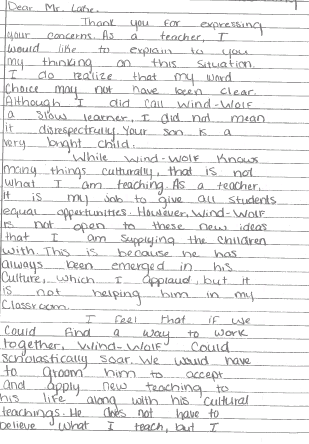 Dear Mr. Lake.
Thank you for expressing
your concerns. As a teacher, I
would like to explain to you
my thinking on this situation.
I do realize that my word
choice may not have been clear.
Although I did call Wind-Wolf
a slow learner, I did not mean
it disrespectfully. Your son is a
very bright child.
While Wind-Wolf knows
many things culturally, that is not
what I am teaching. As a teacher,
it is my job to give all students
equal opportunities. However, Wind-Wolf
is not open to these new ideas
that I am supplying the children
with. This is because he has
always been emerged in his
culture, which I applaud, but it
is not helping him in my
classroom.
I feel that if we
could find a way to work
together, Wind-Wolf could
scholastically soar. We would have
to groom him to accept
and apply new teaching to
his life along with his cultural
teachings. He does not have to
believe what I teach, but I